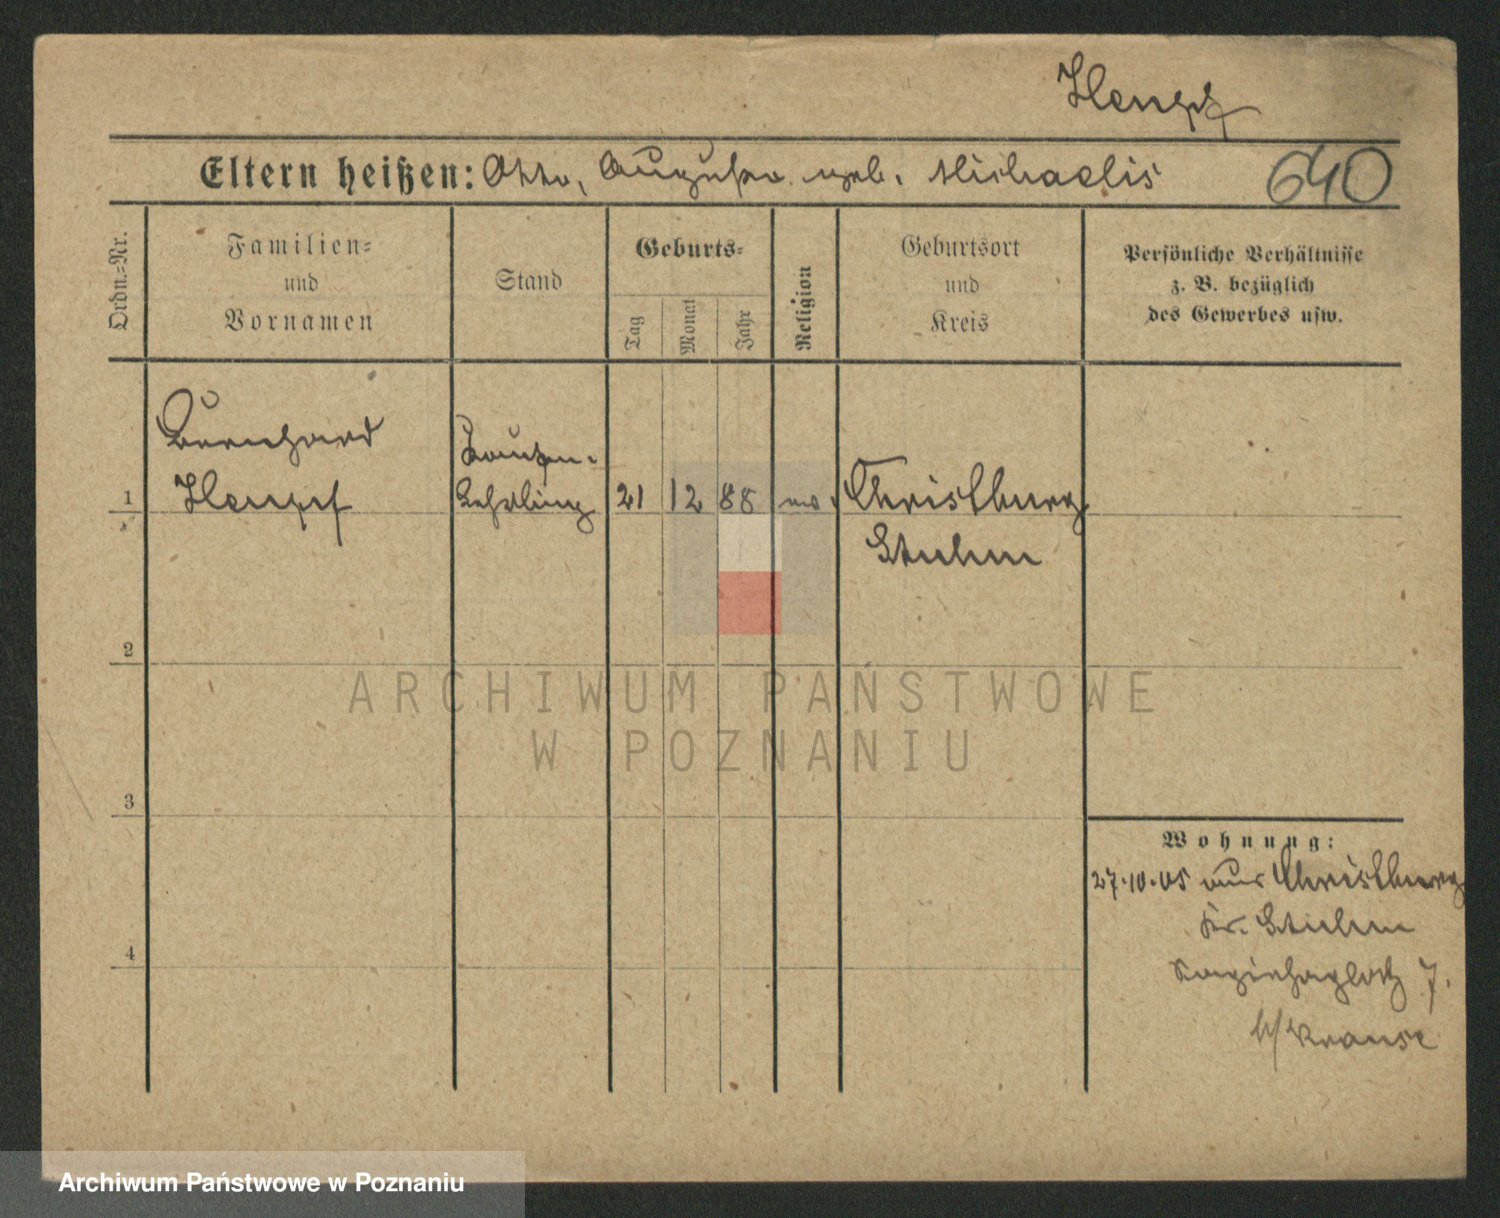 640
Eltern heißen: Otto, Augusta geb. Michaelis
Ordn.=Nr.
Familien=
und
Vornamen
Stand
Geburts=
Tag
Monat
Jahr
Religion
Geburtsort
und
Kreis
Persönliche Verhältnisse
z. B. bezüglich
des Gewerbes usw.
Bernhard
1
Lehrling
21 12 88
Christburg
Stuhm
2
3
4
Wohnung:
27.10.05 aus Christburg
Kr. Stuhm
7.
b/ Krause
ARCHIWUM PAŃSTWOWE
W POZNANIU
Archiwum Państwowe w Poznaniu